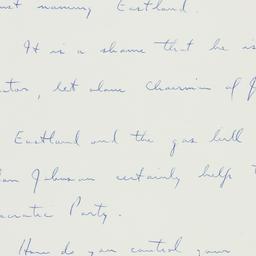 naming Eastland.
It is a shame that he is
let alone Chairman of J
Eastland and the gas bill
Johnson certainly helps
Party.
How do you control your